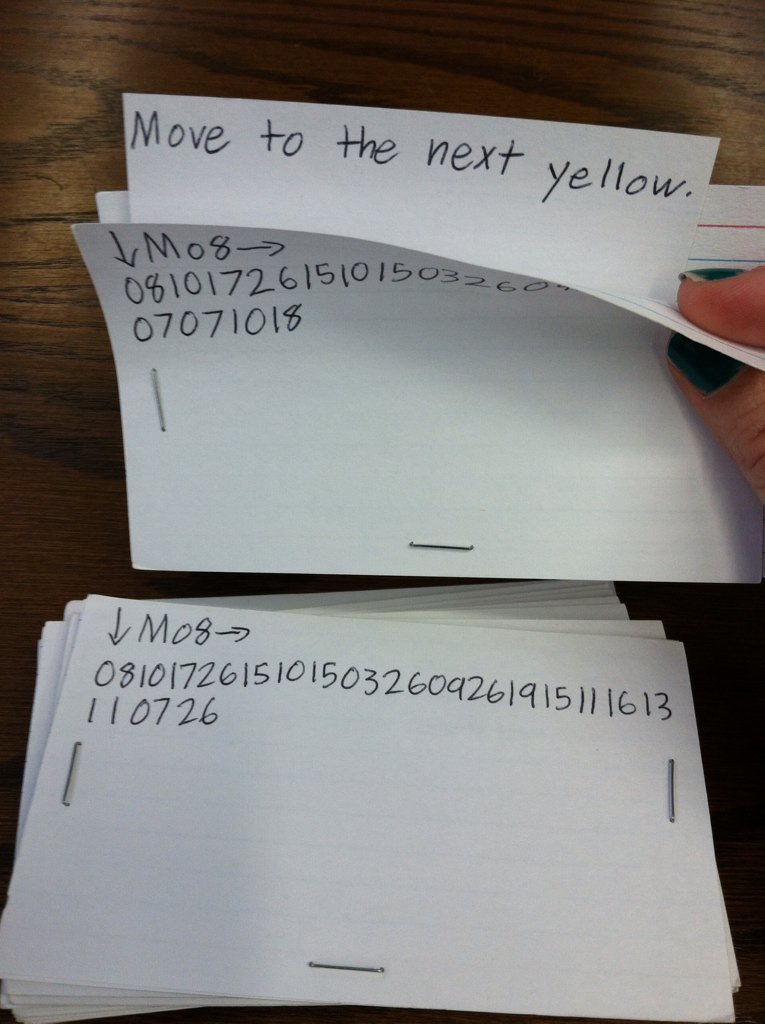 Move to the next yellow.
↓M08→
08101726151015032609
07071018
↓M08→
08101726151015032609261915111613
110726